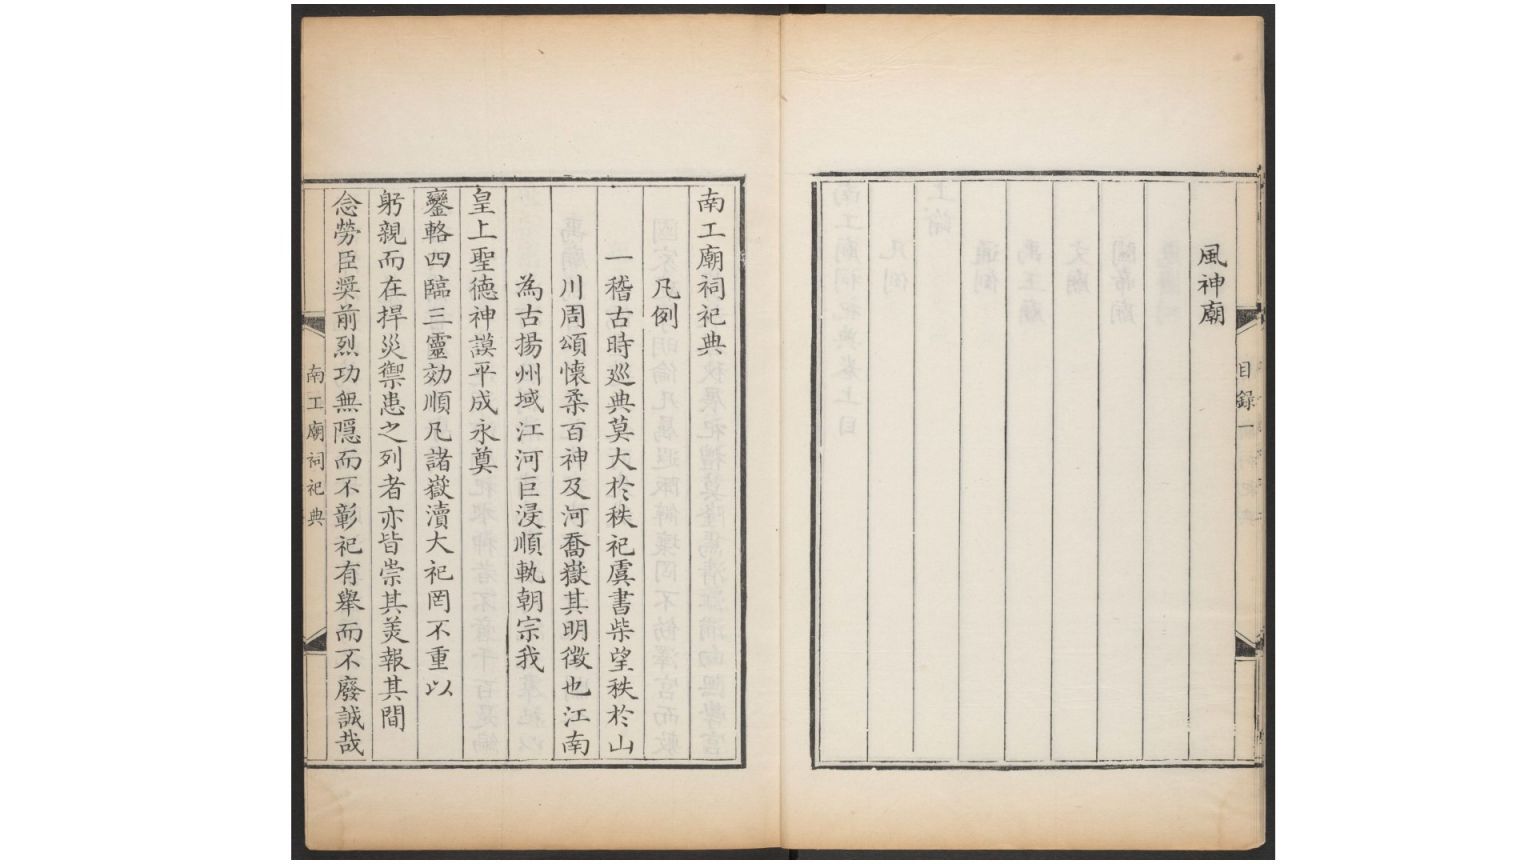 風神廟
目錄一
南工廟祠祀典
凡例
一稽古時巡典莫大於秩祀虞書柴望秩於山
川周頌懷柔百神及河喬嶽其明徵也江南
為古揚州域江河巨浸順軌朝宗我
皇上聖德神謨平成永奠
鑾輅四臨三靈効順凡諸嶽瀆大祀罔不重以
躬親而在捍災禦患之列者亦皆崇其美報其間
念勞臣奬前烈功無隱而不彰祀有舉而不廢誠哉
南工廟祠祀典